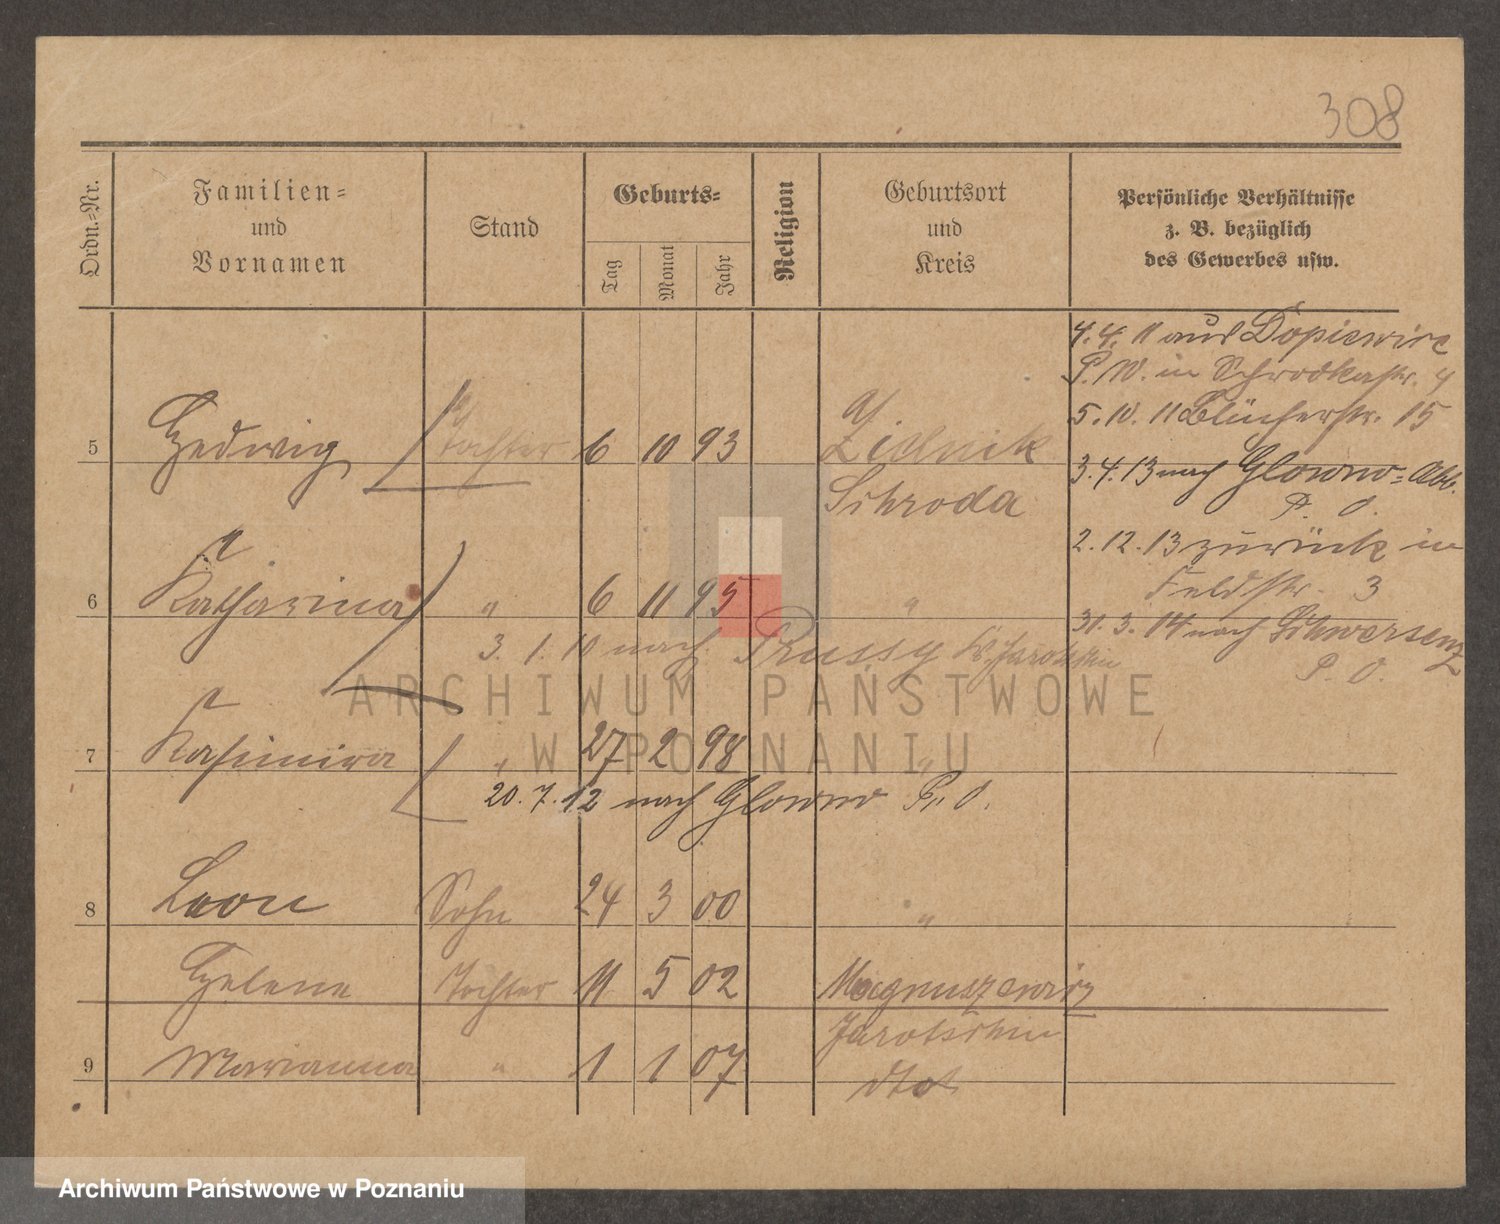 308
Ordn.=Nr.
Familien=
und
Vornamen
Stand
Geburts=
Tag
Monat
Jahr
Religion
Geburtsort
und
Kreis
Persönliche Verhältnisse
z. B. bezüglich
des Gewerbes usw.
4. 4. 11 aus Dopiewiec
P. W. in Schrodkastr. 4
5. 10. 11 Blücherstr. 15
5 Hedwig Tochter 6 10 93 Zidnik
3. 4. 13 nach Glowno = Abb.
Schroda
P. O.
2. 12. 13 zurück in
Feldstr. 3
6 Katharina " 6 11 95 "
31. 3. 14 nach Schwersenz
P. O.
3. 1. 10 nach Prussy Kr. Jarotschin
ARCHIWUM PAŃSTWOWE
W POZNANIU
7 Kasimira " 27 2 98 "
20. 7. 12 nach Glowno P. O.
8 Leon Sohn 24 3 00 "
Helene Tochter 11 5 02 Magnuszewicz
Jarotschin
9 Marianna " 1 1 07 dto
Archiwum Państwowe w Poznaniu